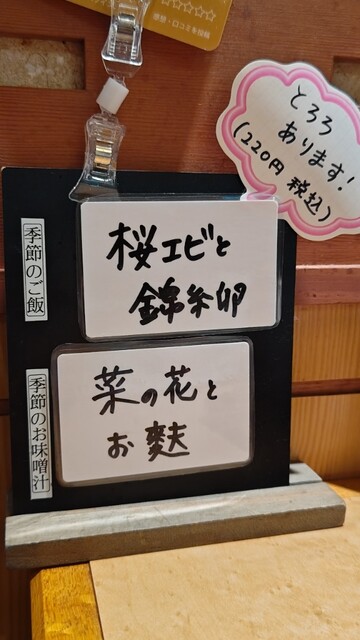 とろろ
あります!
(220円 税込)
季節のご飯
桜エビと
錦糸卵
季節のお味噌汁
菜の花と
お麩